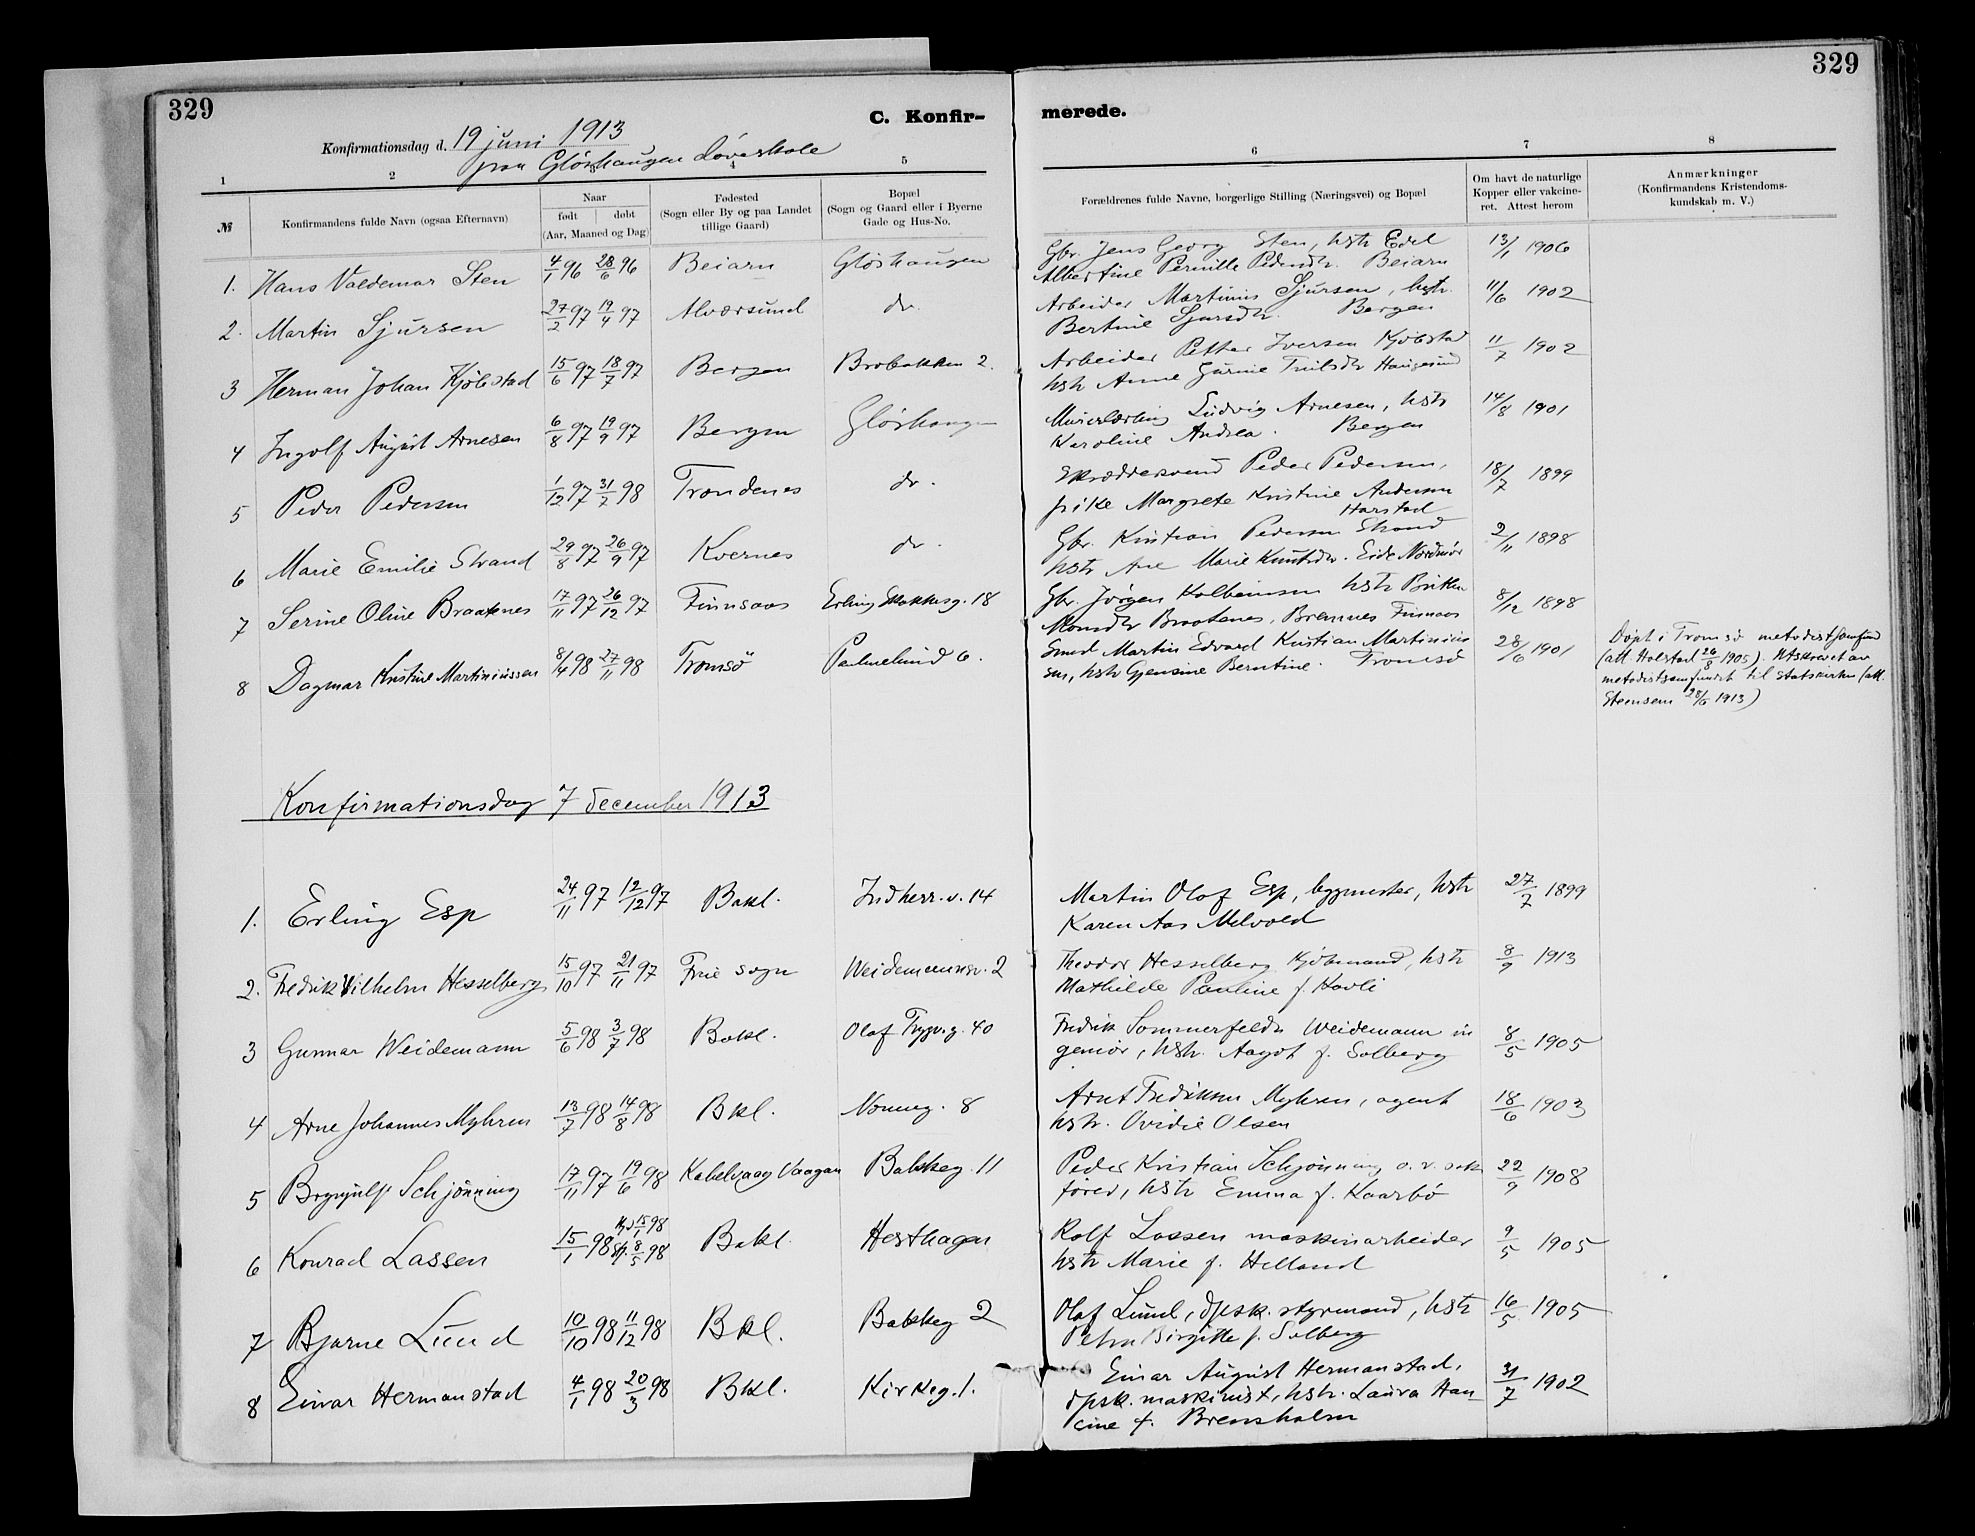 329
329
C. Konfir-
merede.
Konfirmationsdag d. 19 juni 1913
paa Glöshaugen döveskole
1 2 3 4 5 6 7 8
№
Konfirmandens fulde Navn (ogsaa Efternavn)
Naar
født døbt
(Aar, Maaned og Dag)
Fødested
(Sogn eller By og paa Landet
tillige Gaard)
Bopæl
(Sogn og Gaard eller i Byerne
Gade og Hus-No.
Forældrenes fulde Navne, borgerlige Stilling (Næringsvei) og Bopæl
Om havt de naturlige
Kopper eller vakcine-
ret. Attest herom
Anmærkninger
(Konfirmandens Kristendoms-
kundskab m. V.)
1. Hans Valdemar Sten 4/1 96 28/6 96 Beiarn Glöshaugen Gbr. Jens Georg Sten, hstr Edel 13/1 1906
Albertine Pernille Pedersdtr. Beiarn
2. Martin Sjursen 27/2 97 19/4 97 Alversund do. Arbeider Martinus Sjursen, hstr. 11/6 1902
Bertine Sjursdtr. Bergen
3 Herman Johan Kjölstad 15/6 97 18/7 97 Bergen Brobakken 2. Arbeider Petter Iversen Kjölstad 11/7 1902
hstr Anne Gurine Haugesund
4 Ingolf August Arnesen 6/8 97 19/9 97 Bergen Glöshaugen Murerlærling Ludvig Arnesen, hstr 14/8 1901
Karoline Andrea. Bergen
5 Peder Pedersen 1/12 97 31/7 98 Trondenes do. Skræddersvend Peder Pedersen, 18/7 1899
pike Margrete Kristine Andersen
Harstad
6 Marie Emilie Strand 29/8 97 26/9 97 Kvernes do. Gbr. Kristian Pedersen Strand 2/11 1898
hstr Ane Marie Knutsdtr. Eide Nordmör
7 Serine Oline Braatenes 17/11 97 26/12 97 Finnsaas Erling Skakkesg. 18 Gbr. Jörgen Kolbeinsen hstr 8/12 1898
Monsdtr Braatenes, Bremnes Finnaas
8 Dagmar Kristine Martiniussen 8/4 98 27/11 98 Tromsö 6. Smed Martin Edvard Kristian Martinius 28/6 1901
sen, hstr Gjensine Berntine. Tromsö
Döpt i Tromsö metodistsamfund
(att. Halstad 26/8 1905). Utskrevet av
metodistsamfundet til statskirken (att.
Steensem 28/6 1913)
Konfirmationsdag 7 december 1913
1. Erling Esp 24/11 97 12/12 97 Bakl. Indherr.v. 14 Martin Olaf Esp, bygmester, hstr 27/7 1899
Karen Aas Melvold
2. Fredrik Vilhelm Hesselberg 15/10 97 21/11 97 Frue sogn Weidemannsv. 2 Theodor Hesselberg Kjöbmand, hstr 8/9 1913
Mathilde Pauline f. Havli
3 Gunnar Weidemann 5/6 98 3/7 98 Bakl. Olaf Trygv.g. 40 Fredrik Sommerfeldt Weidemann in 8/5 1905
geniör, hstr. Aagot f. Solberg
4 Arne Johannes Myhren 13/7 98 14/8 98 Bkl. Nonneg. 8 Arnt Fredriksen Myhren, agent 18/6 1903
hstr. Ovidie Olsen
5 Brynjulf Schjönning 17/11 97 19/6 98 Kabelvaag Vaagan Bakkeg. 11 Peder Kristian Schjönning o.r.sak 22/9 1908
förer, hstr Emma f. Kaarbö
6 Konrad Lassen 15/1 98 Hjd 15/1 98 Bakl. Hesthagen Rolf Lassen maskinarbeider 9/5 1905
st. 8/5 98 hstr Marie f. Helland
7 Bjarne Lund 10/10 98 11/12 98 Bkl. Bakkeg 2 Olaf Lund, dpsk. styrmand, hstr 16/5 1905
Petra Birgitte f. Solberg
8 Einar Hermanstad 4/1 98 20/3 98 Bkl. Kirkeg. 1. Einar August Hermanstad, 31/7 1902
dpsk. maskinist, hstr. Laura Han
sine f. Bremsholm